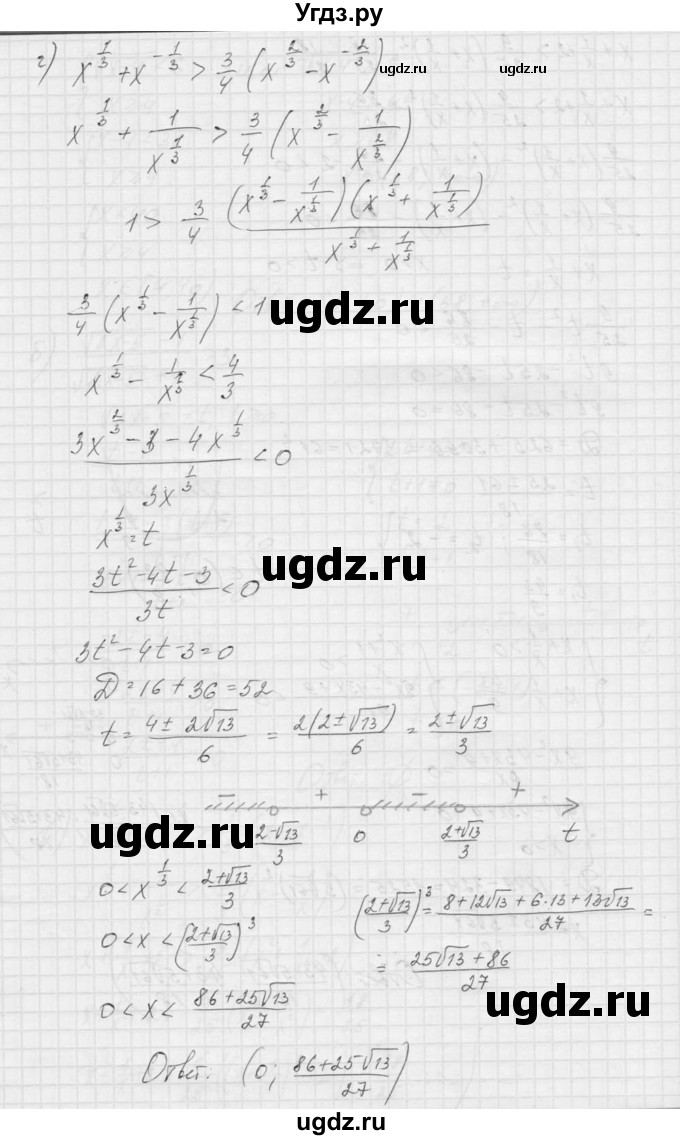 Угдз.ру
г) x^{1/3} + x^{-1/3} > 3/4 (x^{2/3} - x^{-2/3})
ugdz.ru ugdz.ru
x^{1/3} + 1/x^{1/3} > 3/4 (x^{2/3} - 1/x^{2/3})
1 > 3/4 (x^{1/3} - 1/x^{1/3})(x^{1/3} + 1/x^{1/3}) / (x^{1/3} + 1/x^{1/3})
3/4 (x^{1/3} - 1/x^{1/3}) < 1
ugdz.ru
x^{1/3} - 1/x^{1/3} < 4/3
(3x^{2/3} - 3 - 4x^{1/3}) / (3x^{1/3}) < 0
x^{1/3} = t
ugdz.ru
(3t² - 4t - 3) / (3t) < 0
3t² - 4t - 3 = 0
D = 16 + 36 = 52
t = (4 ± 2√13)/6 = 2(2 ± √13)/6 = (2 ± √13)/3
ugdz.ru
- + - +
(2-√13)/3 0 (2+√13)/3 t
ugdz.ru
0 < x^{1/3} < (2+√13)/3
((2+√13)/3)^3 = (8 + 12√13 + 6·13 + 13√13)/27 =
0 < x < ((2+√13)/3)^3
= (25√13 + 86)/27
ugdz.ru
0 < x < (86 + 25√13)/27
Ответ: (0; (86+25√13)/27)
ugdz.ru